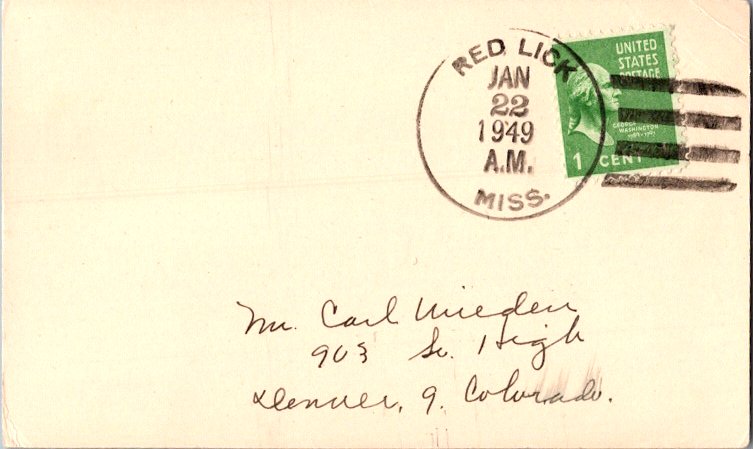 RED LICK
JAN
22
1949
A.M.
MISS.
UNITED
STATES
POSTAGE
GEORGE
WASHINGTON
1 CENT
Mr. Carl
903 So. High
Denver, 9. Colorado.